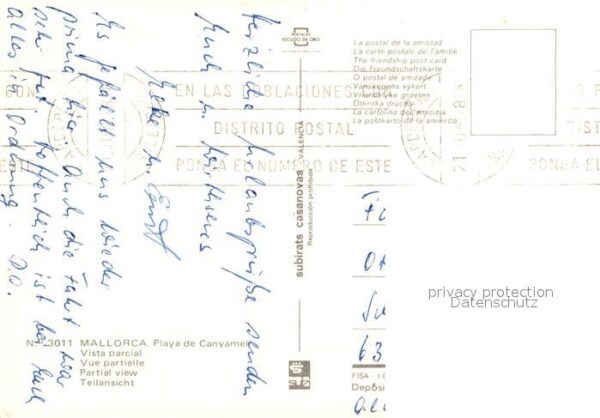 ESCUDO DE ORO
La postal de la amistad
La carte postale de l'amitié
The friendship post card
Die Freundschaftskarte
O postal de amizade
Vanskopens vykort
Vriendelijke groeten
Otkritka druzhby
La cartolina dell'amicizia
La poŝtkarto de la amikeco
EN LAS POBLACIONES CON
DISTRITO POSTAL
PONGA EL NUMERO DE ESTE
Herzliche Urlaubsgrüße senden
Euch
Es gefällt uns wieder
prima hier. Auch die Fahrt war
sehr gut. Hoffentlich ist bei Euch
alles in Ordnung.
subirats casanovas VALENCIA
Reproducción prohibida
63
privacy protection
Datenschutz
N.º 3011 MALLORCA. Playa de Canyamel
Vista parcial
Vue partielle
Partial view
Teilansicht
FISA - I.G.
Depós